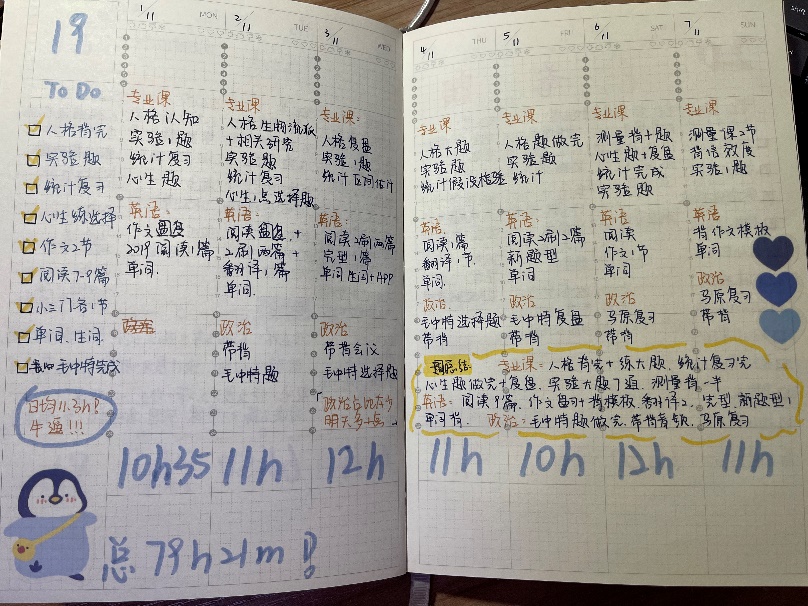 19
To Do
人格背完
实验题
统计复习
心生练选择
作文2节
阅读7-9篇
小三门各1节
单词.生词
毛中特完成
1/11 MON
专业课
人格认知
实验1题
统计复习
心生题
英语:
作文
2019阅读1篇
单词.
政治
10h35
2/11 TUE
专业课
人格生物流派
+相关研究
实验题
统计复习
心生1点选择题
英语:
阅读 +
2刷两篇+
翻译1篇
单词.
政治
带背
毛中特题
11h
3/11 WED
专业课:
人格复盘
实验1题
统计区间估计
英语:
阅读2刷两篇
完型1篇
单词生词+APP
政治
带背会议
毛中特选择题
明天多
12h
日均
牛逼!!!
总79h21m!
4/11 THU
专业课
人格大题
实验题
统计假设检验
英语:
阅读1篇
翻译1节.
单词.
政治
毛中特选择题
带背
11h
5/11 FRI
专业课
人格题做完
实验题
统计
英语:
阅读2刷2篇
新题型
单词
政治:
毛中特复盘
带背
10h
6/11 SAT
专业课
测量背+题
心生题+复盘
统计完成
实验题
英语:
阅读
作文1节
单词
政治
马原复习
带背
12h
7/11 SUN
专业课
测量课2节
背信效度
实验1题
英语
背作文模板
单词
政治
马原复习
带背
11h
专业课: 人格背完+练大题. 统计复习完
心生题做完+复盘. 实验大题7道. 测量背一半
英语: 阅读9篇. 作文 +背模板 翻译2. 完型 新题型1
单词背. 政治: 毛中特题做完. 带背 马原复习